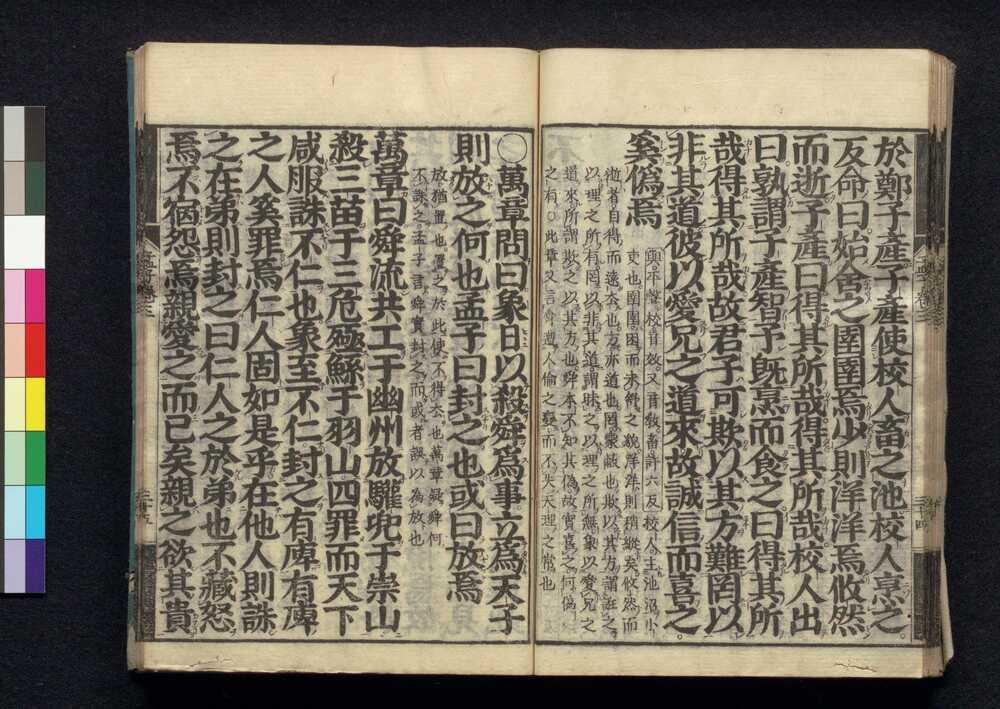 於鄭子產子產使校人畜之池校人烹之
反命曰始舍之圉圉焉少則洋洋焉攸然
而逝子產曰得其所哉得其所哉校人出
曰孰謂子產智予既烹而食之曰得其所
哉得其所哉故君子可欺以其方難罔以
非其道彼以愛兄之道來故誠信而喜之
奚偽焉
與平聲校音效又音教畜許六反校人主池沼小
吏也圉圉困而未紓之貌洋洋則稍縱矣攸然而
逝者自得而遠去也方亦道也罔蒙蔽也欺以其方謂誑之
以理之所有罔以非其道謂昧之以理之所無象以愛兄之
道來所謂欺之以其方也舜本不知其偽故實喜之何偽
之有○此章又言舜遭人倫之變而不失天理之常也
○萬章問曰象日以殺舜為事立為天子
則放之何也孟子曰封之也或曰放焉
放猶置也置之於此使不得去也萬章疑舜何
不誅之孟子言舜實封之而或者誤以為放也
萬章曰舜流共工于幽州放驩兜于崇山
殺三苗于三危殛鯀于羽山四罪而天下
咸服誅不仁也象至不仁封之有庳有庳
之人奚罪焉仁人固如是乎在他人則誅
之在弟則封之曰仁人之於弟也不藏怒
焉不宿怨焉親愛之而已矣親之欲其貴